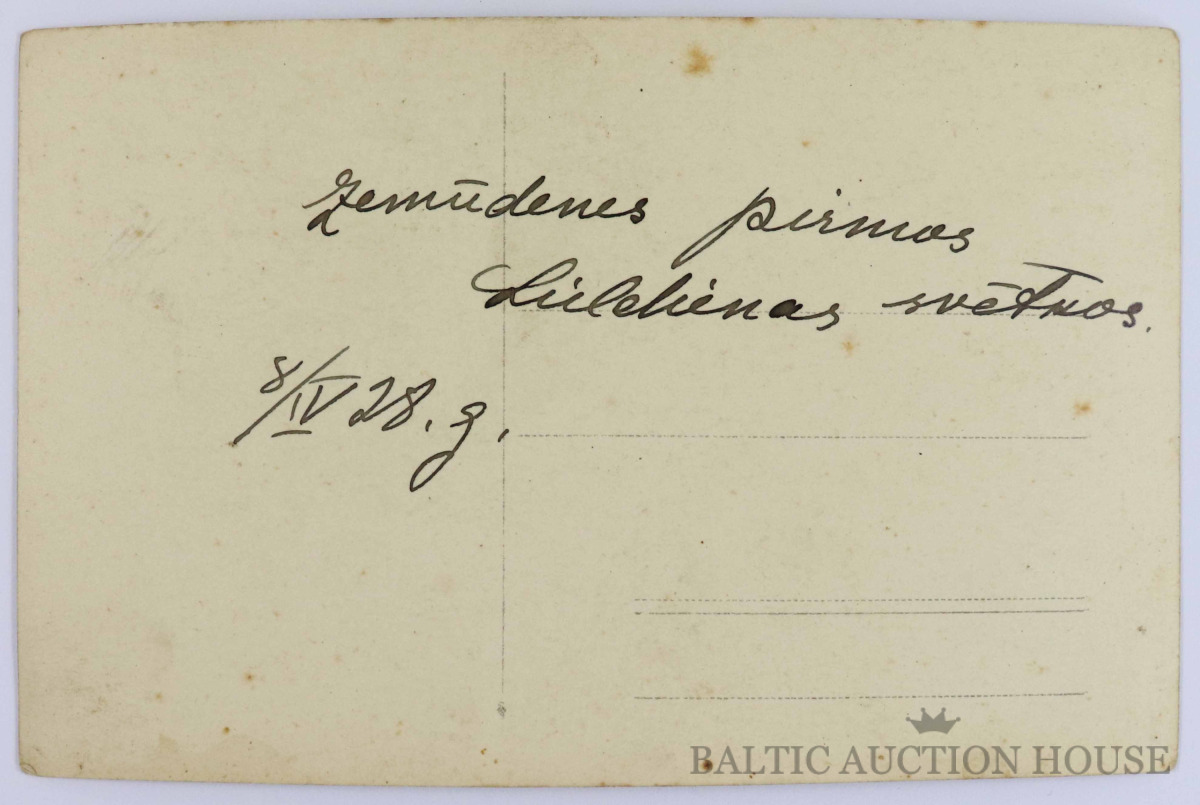 Zemūdenes pirmos
Lieldienas svētkos.
8/IV 28. g.
BALTIC AUCTION HOUSE